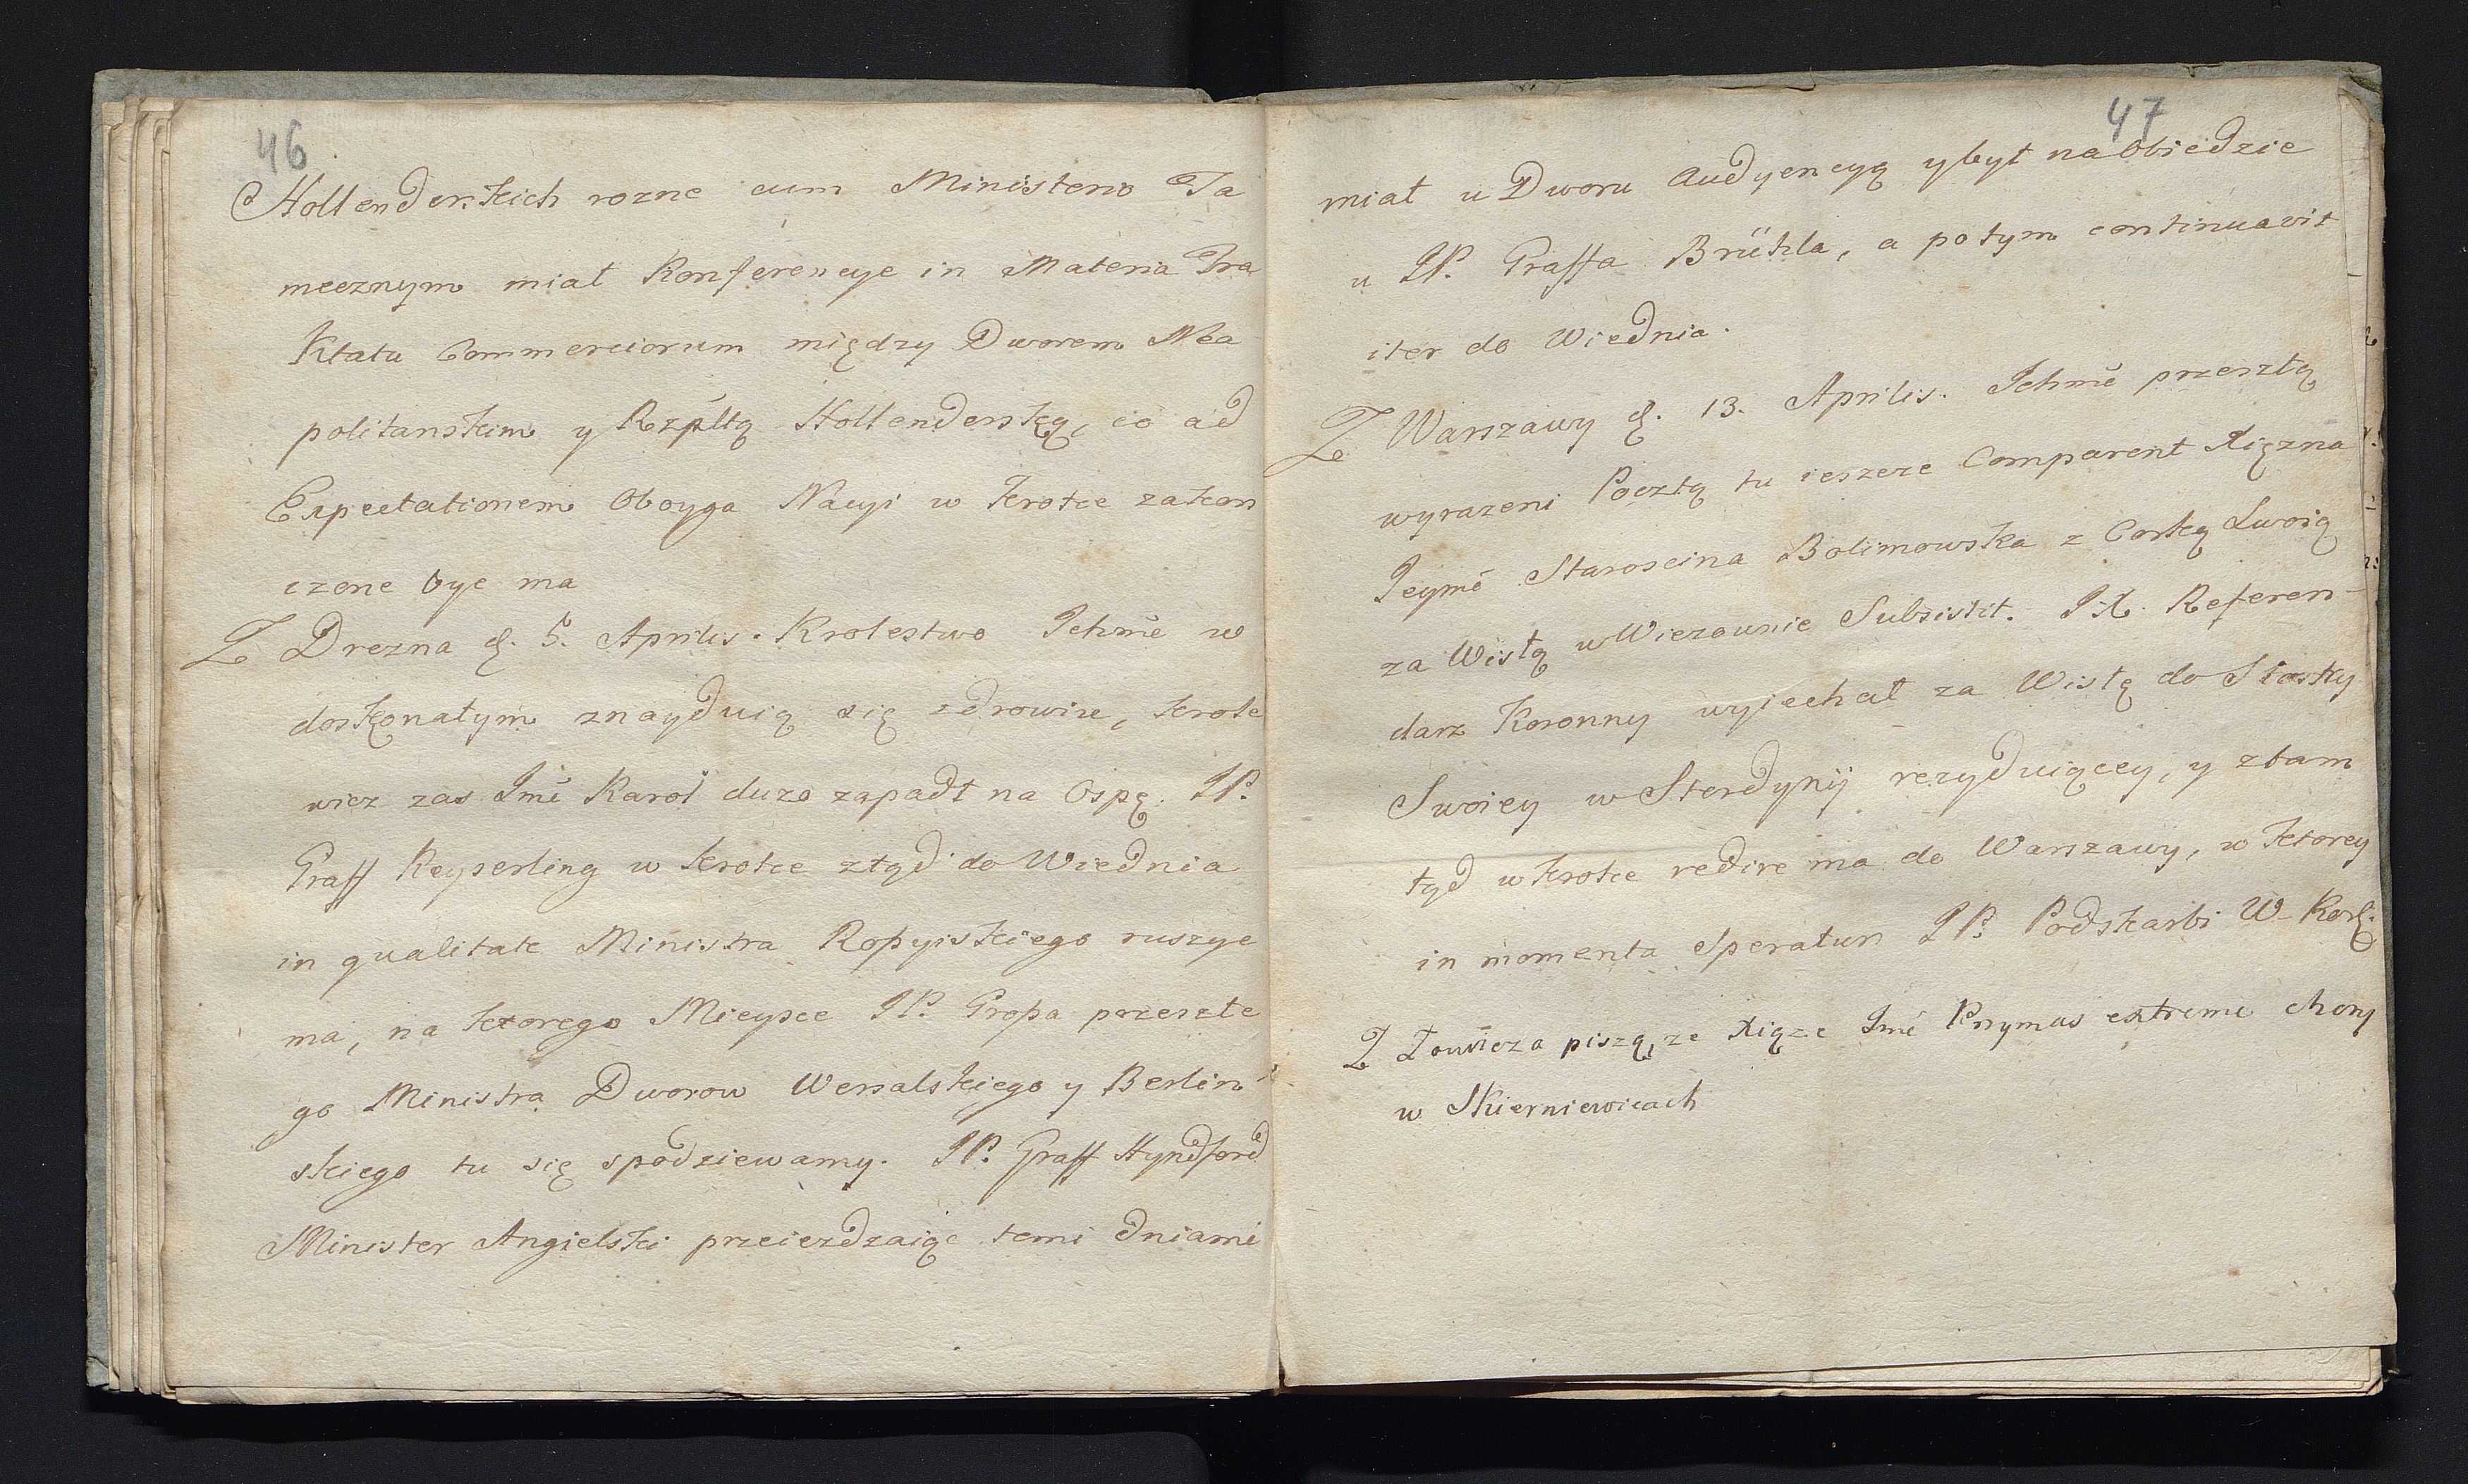 46
Hollenderskich rozne cum Ministerio Ta
mecznym miał Konferencye in Materia Tra
ktatu Commerciorum między Dworem Nea
politanskim y Rzpltą Hollenderską, co ad
Expectationem Oboyga Nacyi w krotce zakon
czone byc ma
Z Drezna d. 5. Aprilis. Krolestwo Ichmē w
doskonałym znayduią się zdrowiu, krole
wicz zas Jmē Karol duzo zapadł na Ospę. JP.
Graff Keyserling w krotce ztąd do Wiednia
in qualitate Ministra Rossyiskiego ruszyc
ma, na ktorego Mieysce JP. Grossa przeszłe
go Ministra Dworow Wersalskiego y Berlin-
skiego tu się spodziewamy. JP. Graff Hyndford
Minister Angielski przeiezdzaiąc temi dniami
47
miał u Dworu Audyencyą y był na Obiedzie
u JP. Graffa Brühla, a potym continuavit
iter do Wiednia.
Z Warszawy d. 13. Aprilis. Ichmē przeszłą
wyrazeni Pocztą tu ieszcze Comparent Xięzna
Jeymē Staroscina Bolimowska z Corką Swoią
za Wisłą w Wiezownie Subsistit. JX. Referen-
darz Koronny wyiechał za Wisłę do Siostry
Swoiey w Sterdynij rezyduiącey, y ztam
tyd w krotce redire ma do Warszawy, w ktorey
in momenta Speratur JP. Podskarbi W. Kor.
Z Łowicza piszą, ze Xiąze Jmē Prymas extreme chory
w Skierniewicach